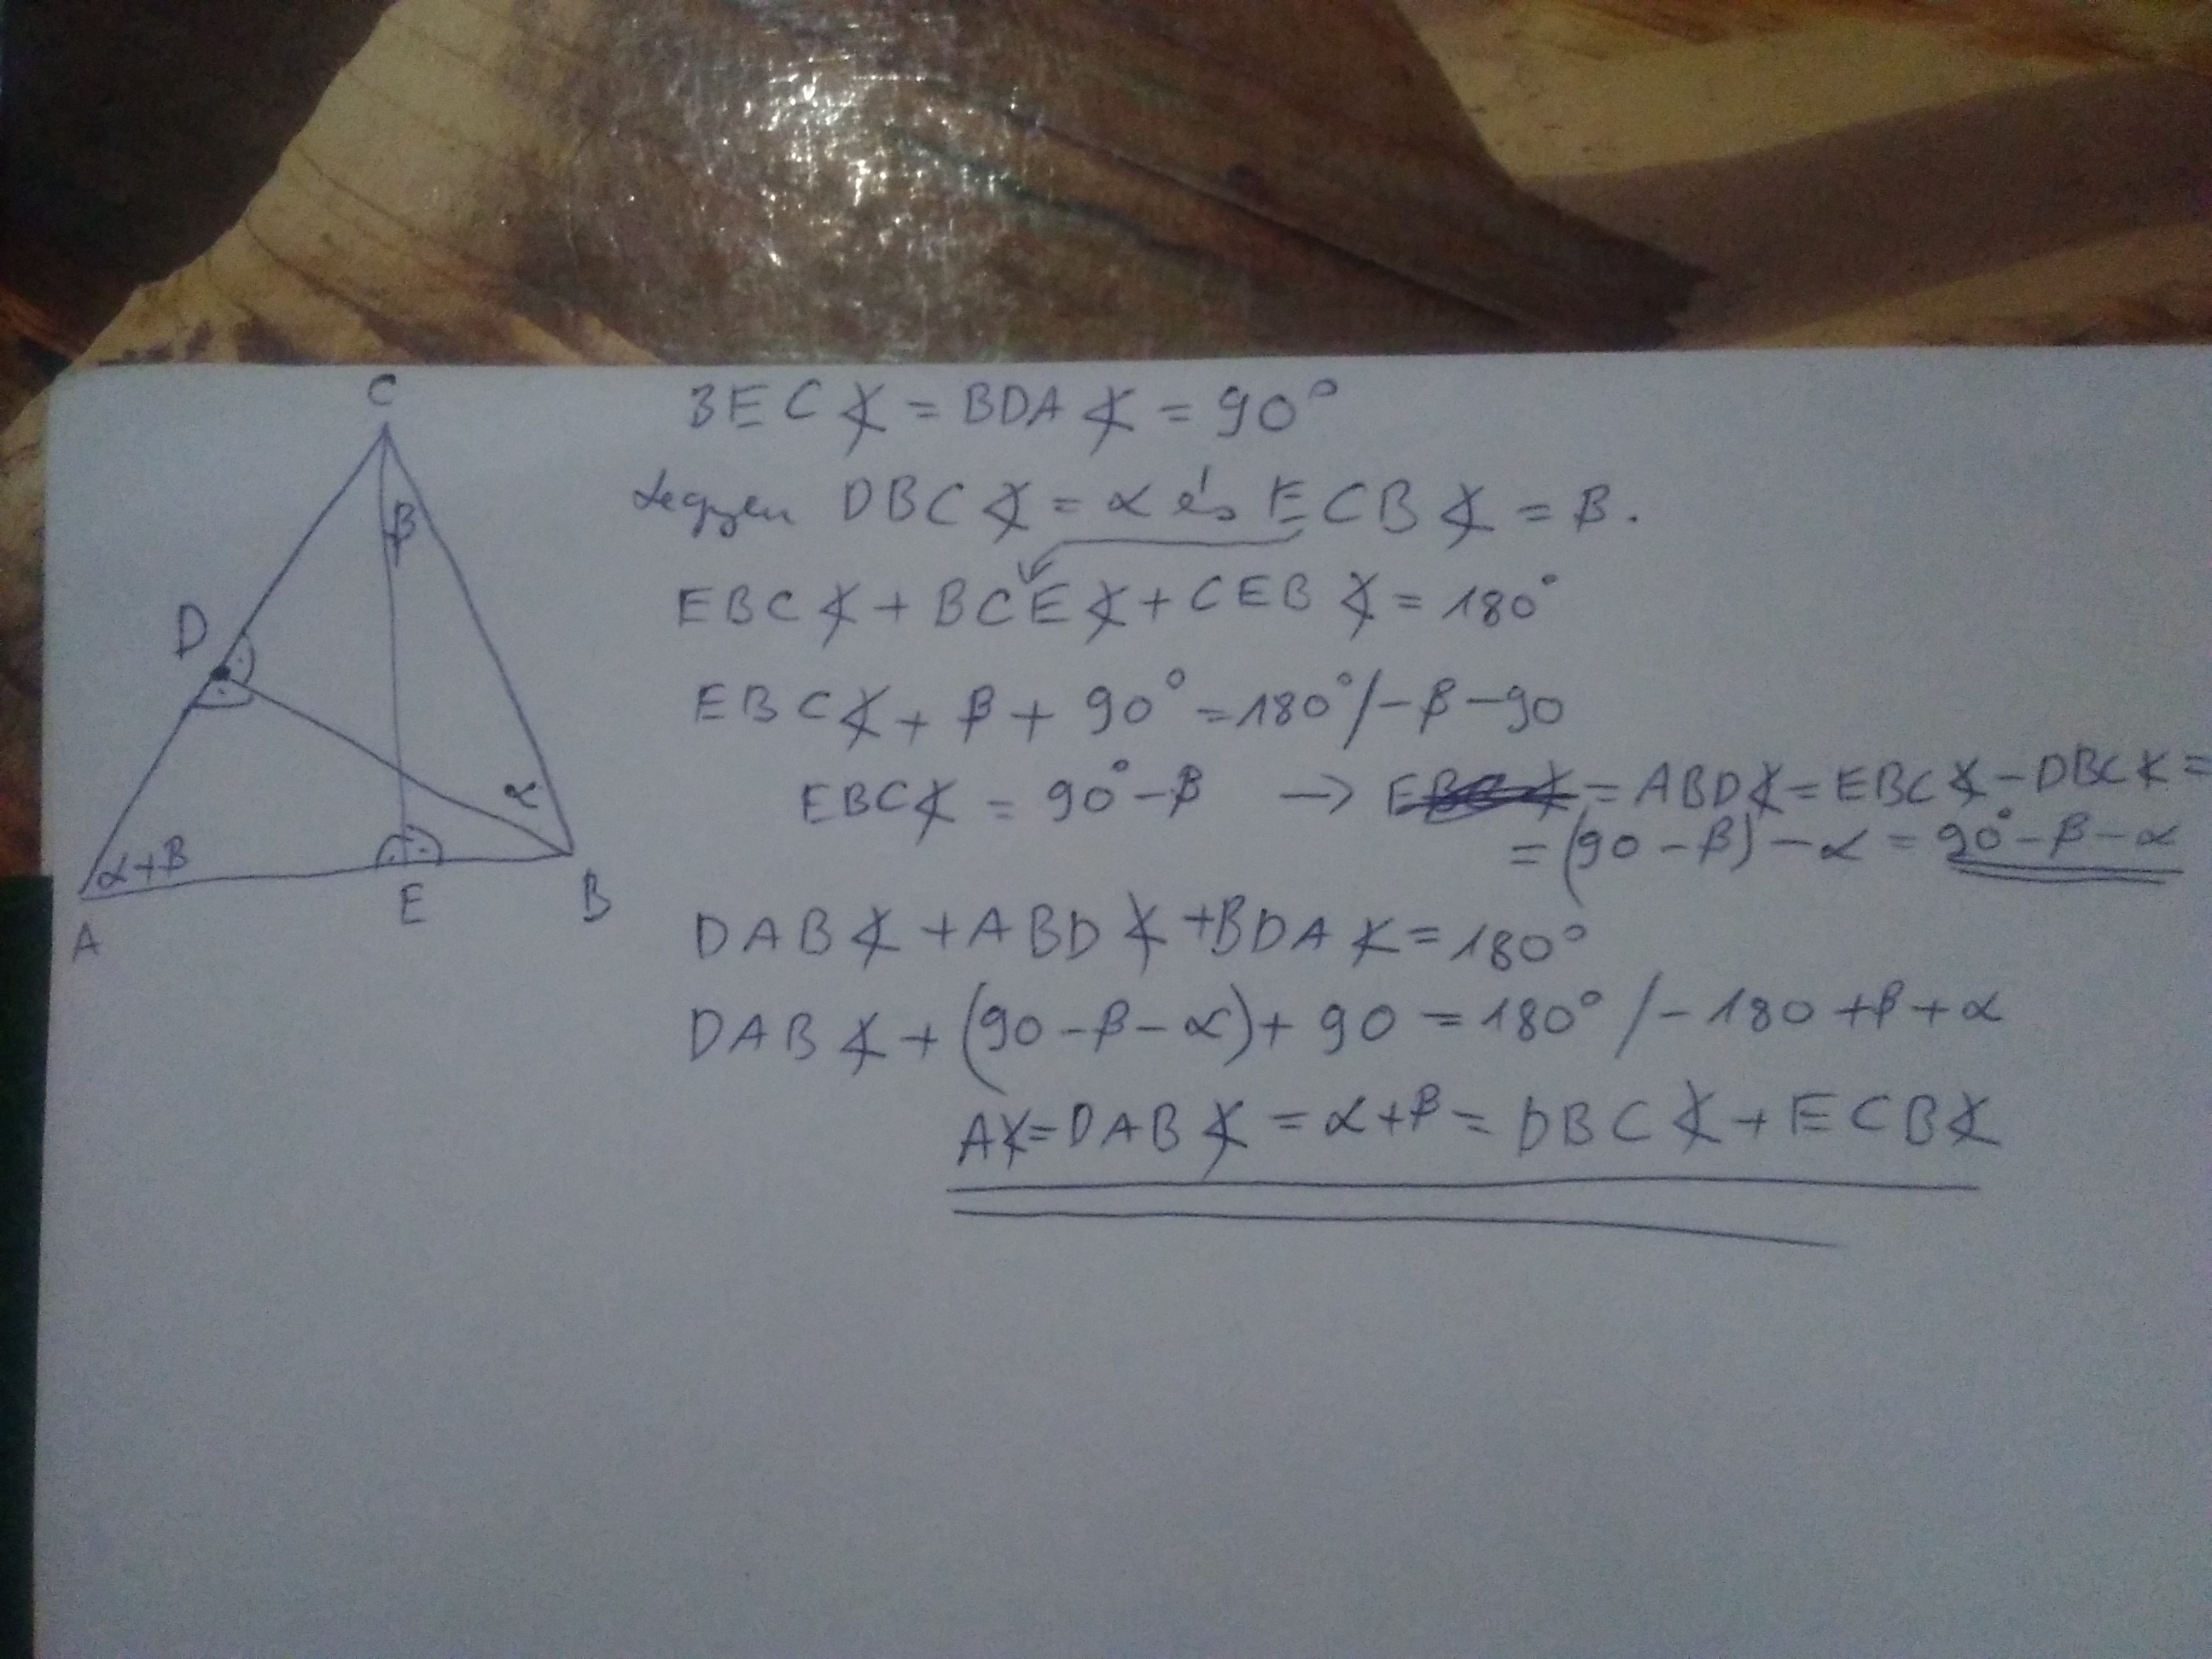 C
β
D
α
α+β
E
B
A
BEC∢ = BDA∢ = 90°
Legyen DBC∢ = α és ECB∢ = β.
EBC∢ + BCE∢ + CEB∢ = 180°
EBC∢ + β + 90° = 180° /-β-90
EBC∢ = 90°-β → = ABD∢ = EBC∢ - DBC∢ =
= (90-β) - α = 90°-β-α
DAB∢ + ABD∢ + BDA∢ = 180°
DAB∢ + (90-β-α) + 90 = 180° /-180+β+α
A∢ = DAB∢ = α+β = DBC∢ + ECB∢